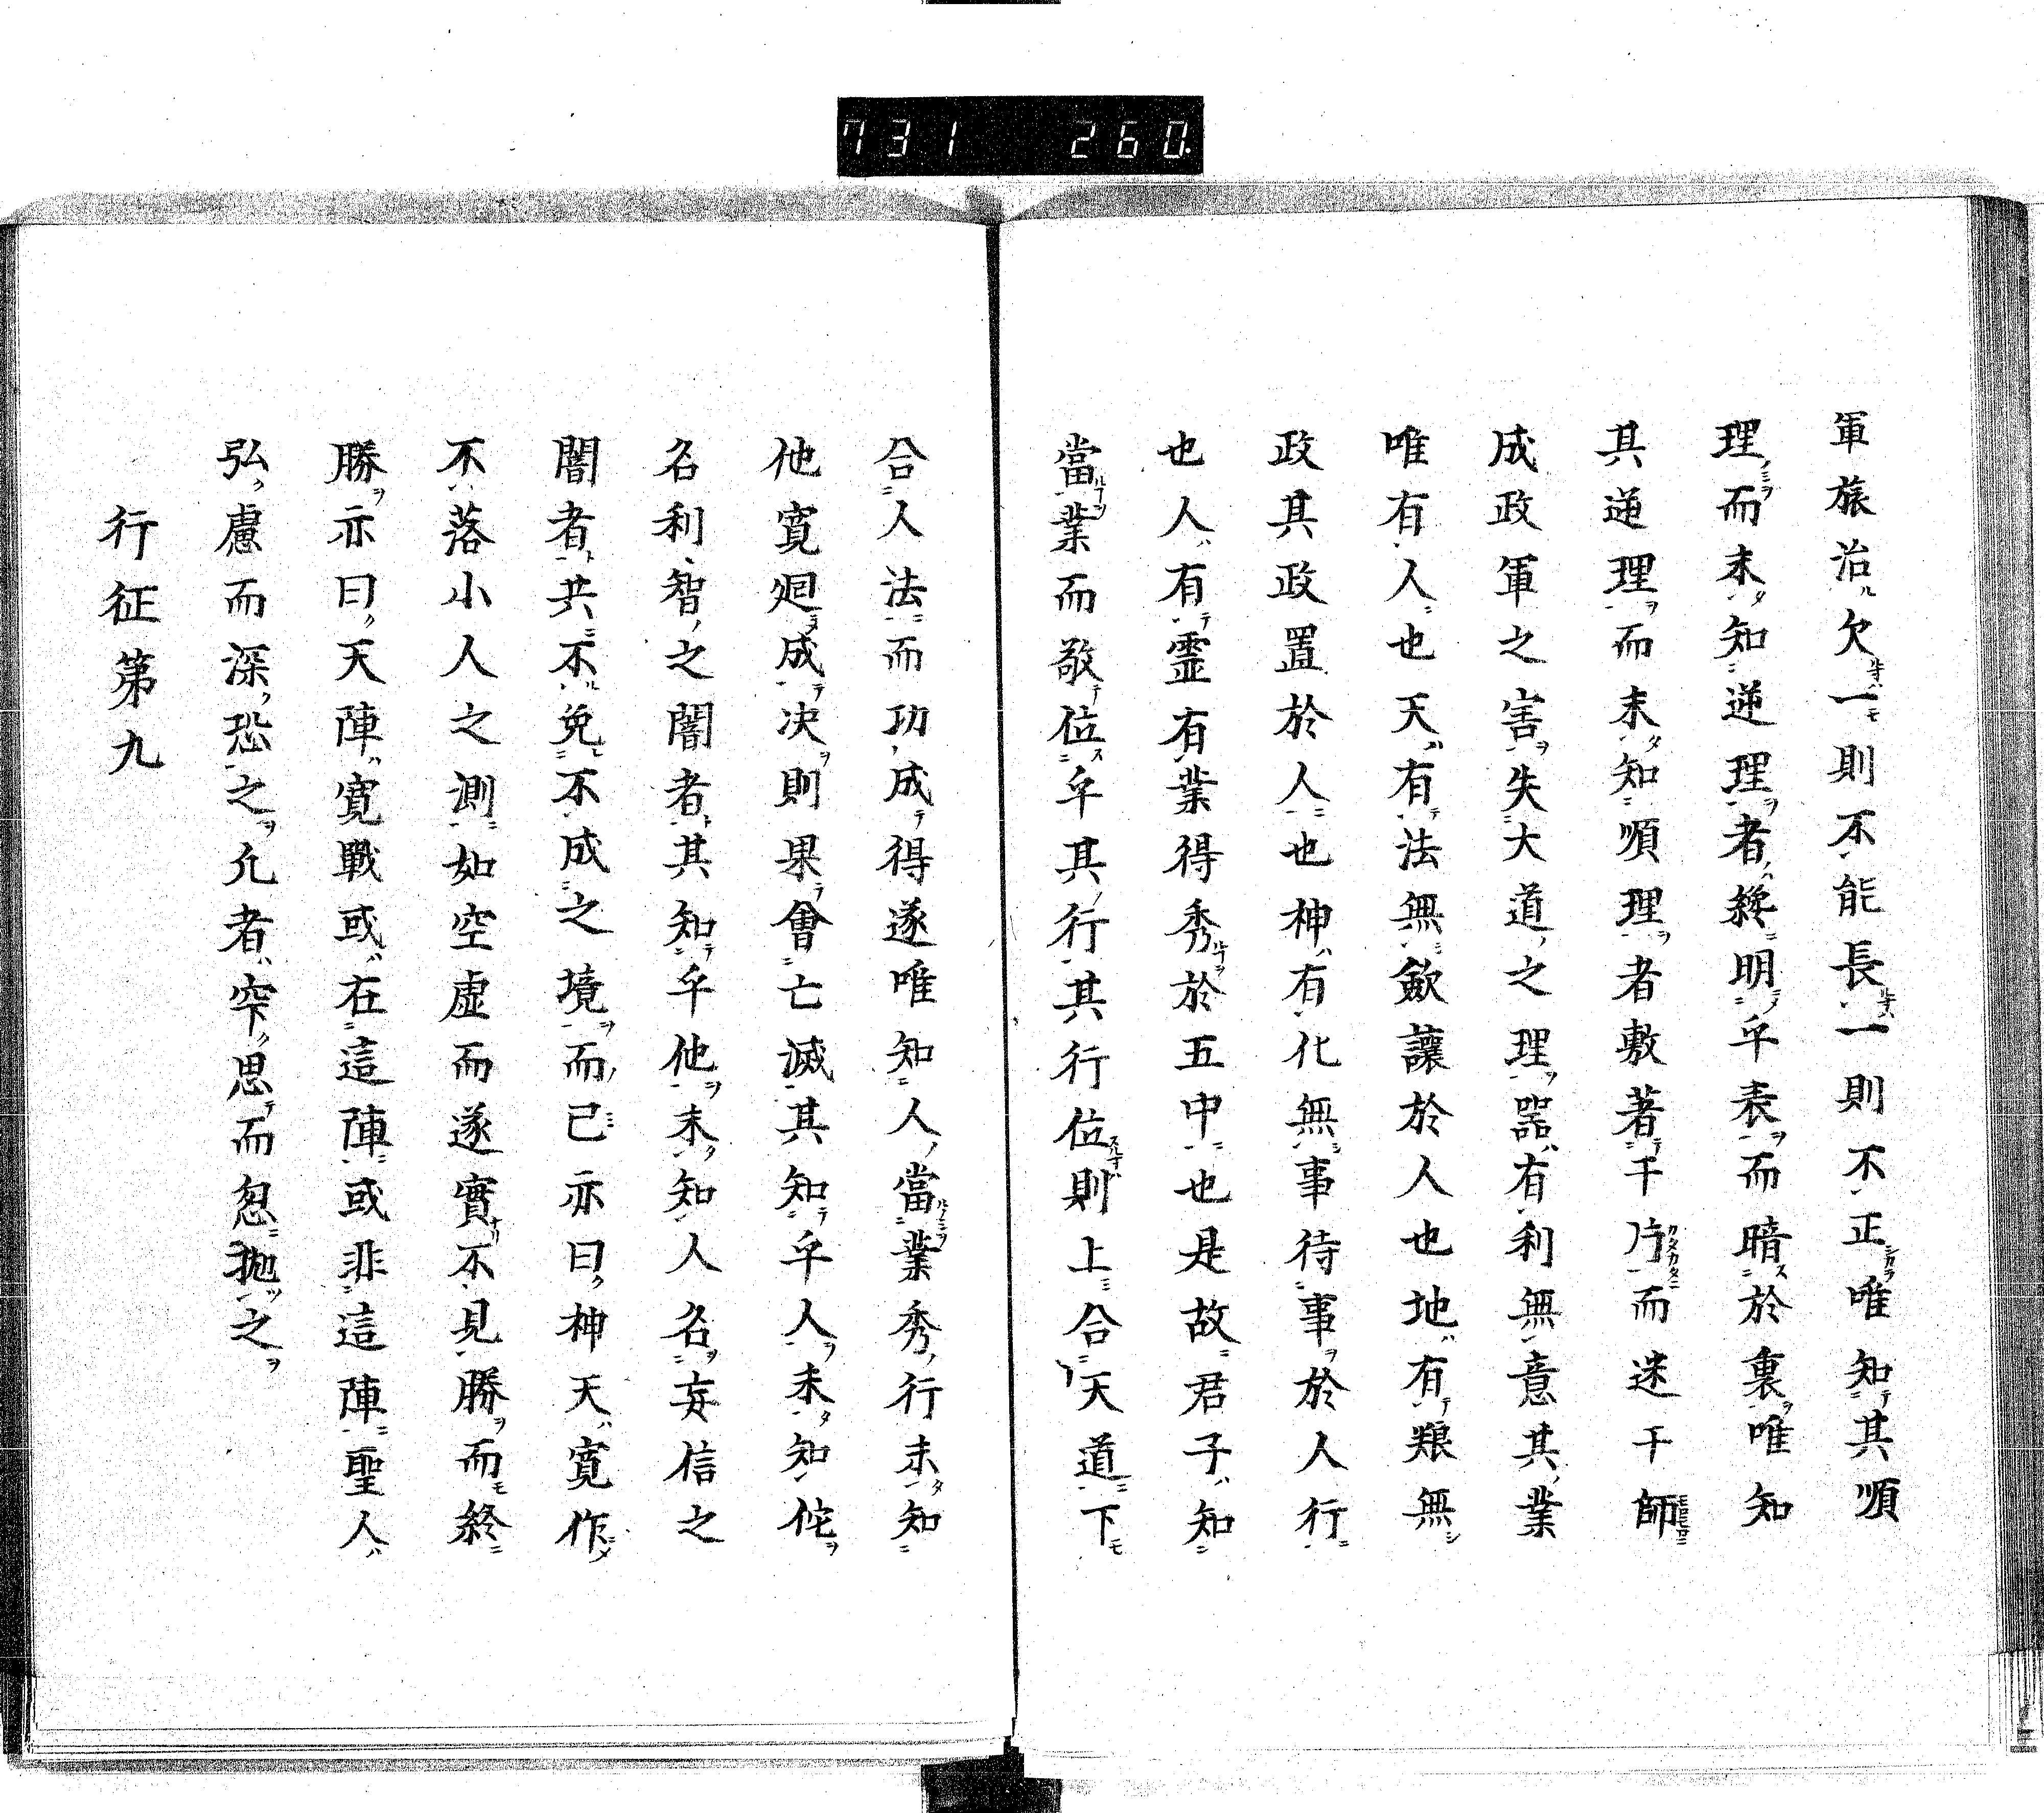 731 260
軍旅治欠一則不能長一則不正唯知其順
理而未知逆理者終明乎表而暗於裏唯知
其逆理而未知順理者敷著千片而迷千師
成政軍之害失大道之理器有利無意其業
唯有人也天有法無斂讓於人也地有粮無
政其政置於人也神有化無事待事於人行
也人有霊有業得秀於五中也是故君子知
當業而敬位乎其行其行位則上合天道下
合人法而功成得遂唯知人當業秀行未知
他寛廻成决則果會亡滅其知乎人未知侘
名利智之闇者其知乎他未知人名妄信之
闇者共不免不成之境而已亦曰神天寛作
不落小人之測如空虚而遂實不見勝而終
勝亦曰天陣寛戰或在這陣或非這陣聖人
弘慮而深恐之允者窄思而忽抛之
行征第九